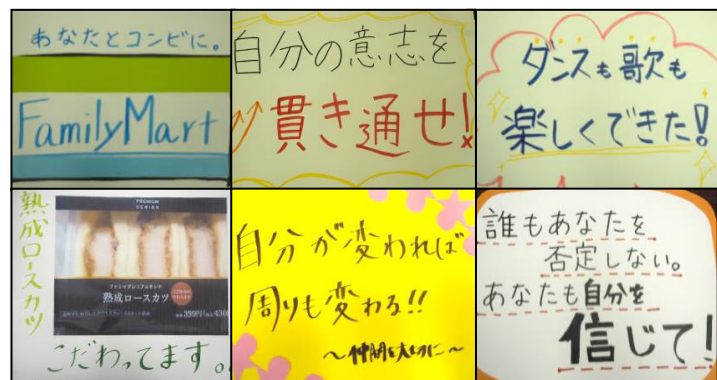 あなたとコンビに。
FamilyMart
自分の意志を
貫き通せ!
ダンスも歌も
楽しくできた!
熟成ロースカツ
PREMIUM
SERIES
ファミマプレミアムサンド
熟成ロースカツ
こだわってます。
自分が変われば
周りも変わる!!
～仲間を大切に～
誰もあなたを
否定しない。
あなたも自分を
信じて!